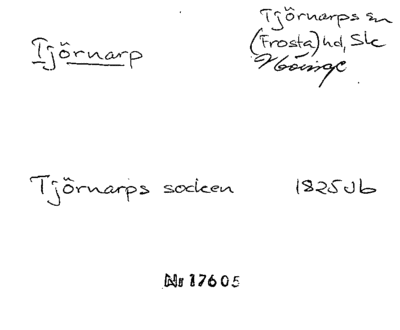 Tjörnarp
Tjörnarps sn
(Frosta) hd, Sk
Höinge
Tjörnarps socken 1825 Jb
Nr 17605